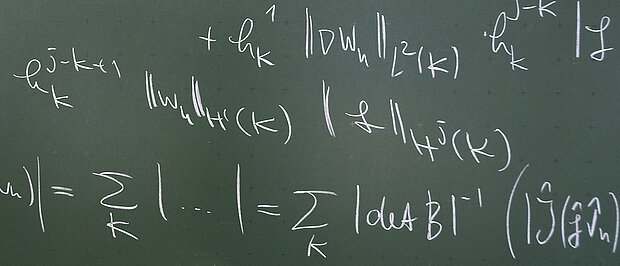 + h_K^1 ||Dw_h||_{L^2(K)} · h_K^{j-k} |f
h_K^{j-k+1} ||w_h||_{H^1(K)} |f||_{H^j(K)}
w_h)| = ∑_K |...| = ∑_K |det B|^{-1} (|Ĵ(f̂ v̂_h)